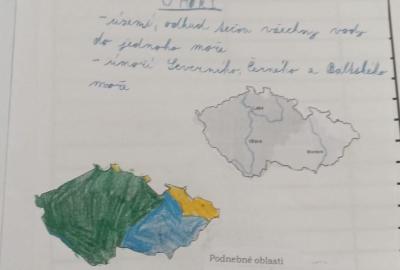 ÚMOŘÍ
- území, odkud tečou všechny vody
do jednoho moře
- úmoří Severního, Černého a Baltského
moře
Labe
Vltava
Morava
Podnebné oblasti